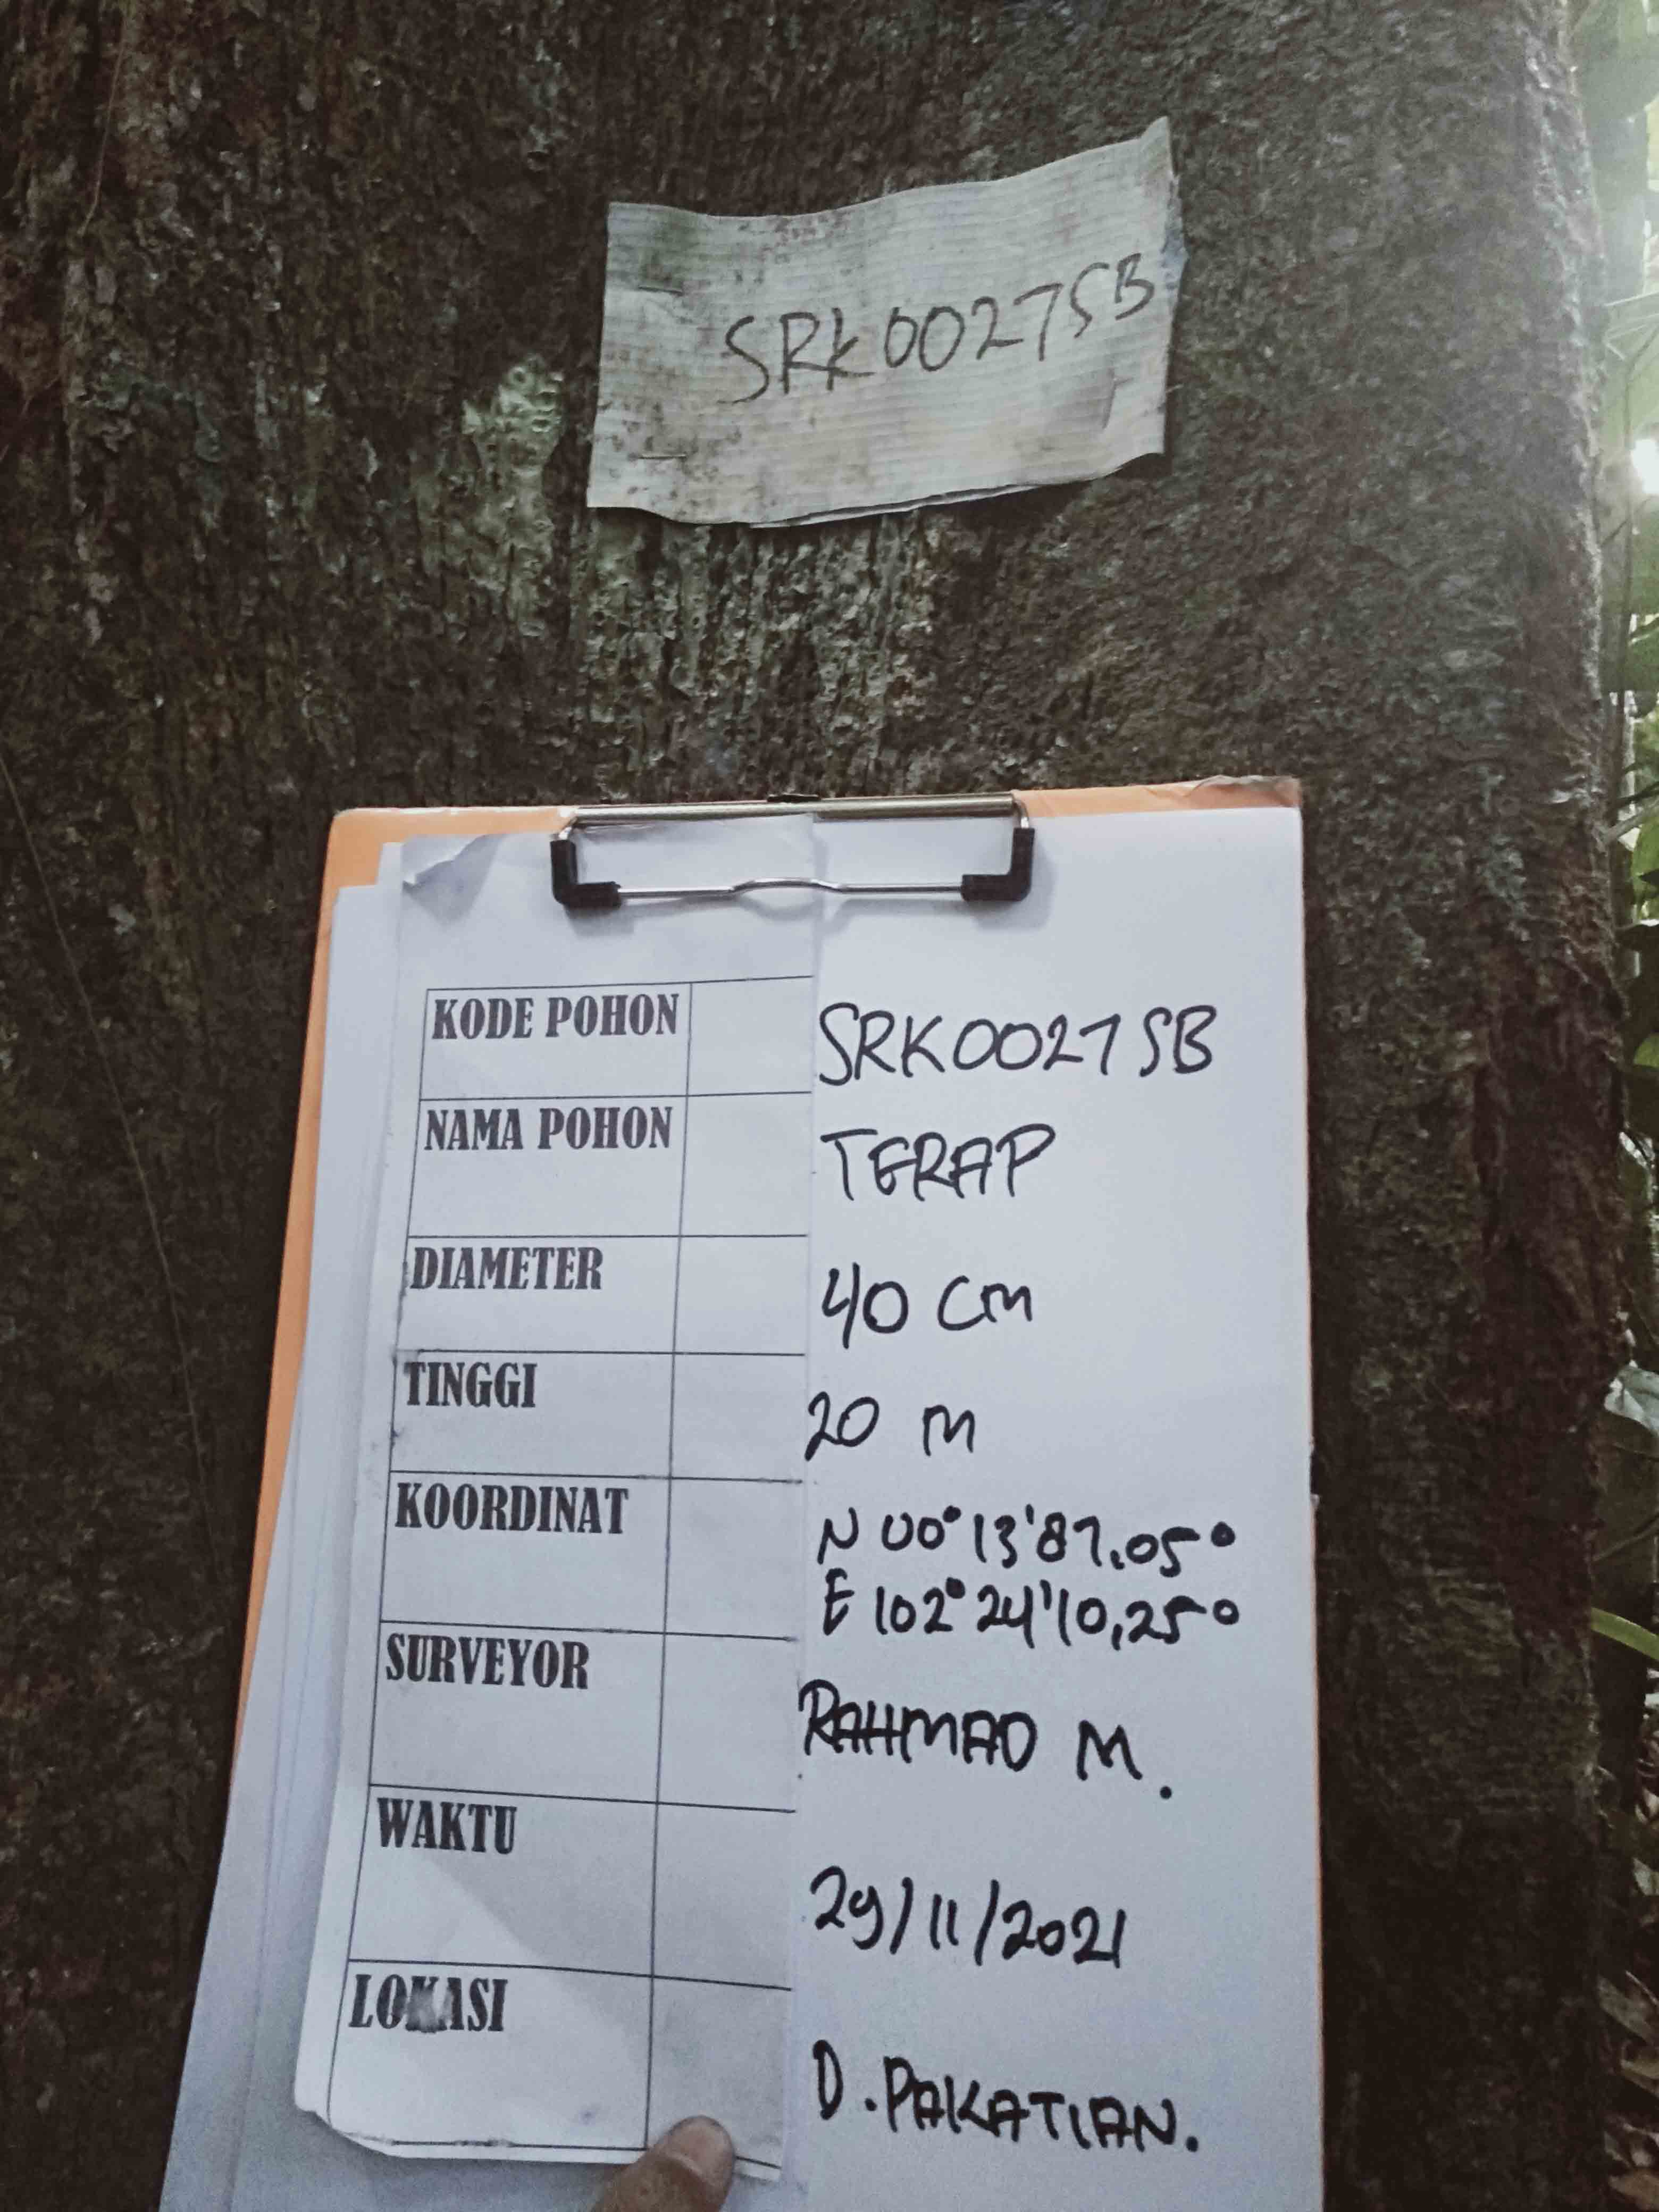 SRK0027SB
KODE POHON SRK0027SB
NAMA POHON TERAP
DIAMETER 40 CM
TINGGI 20 M
KOORDINAT N 00° 13'87.05°
E 102° 24'10,25°
SURVEYOR RAHMAD M.
WAKTU 29/11/2021
LOKASI D. PAKATIAN.